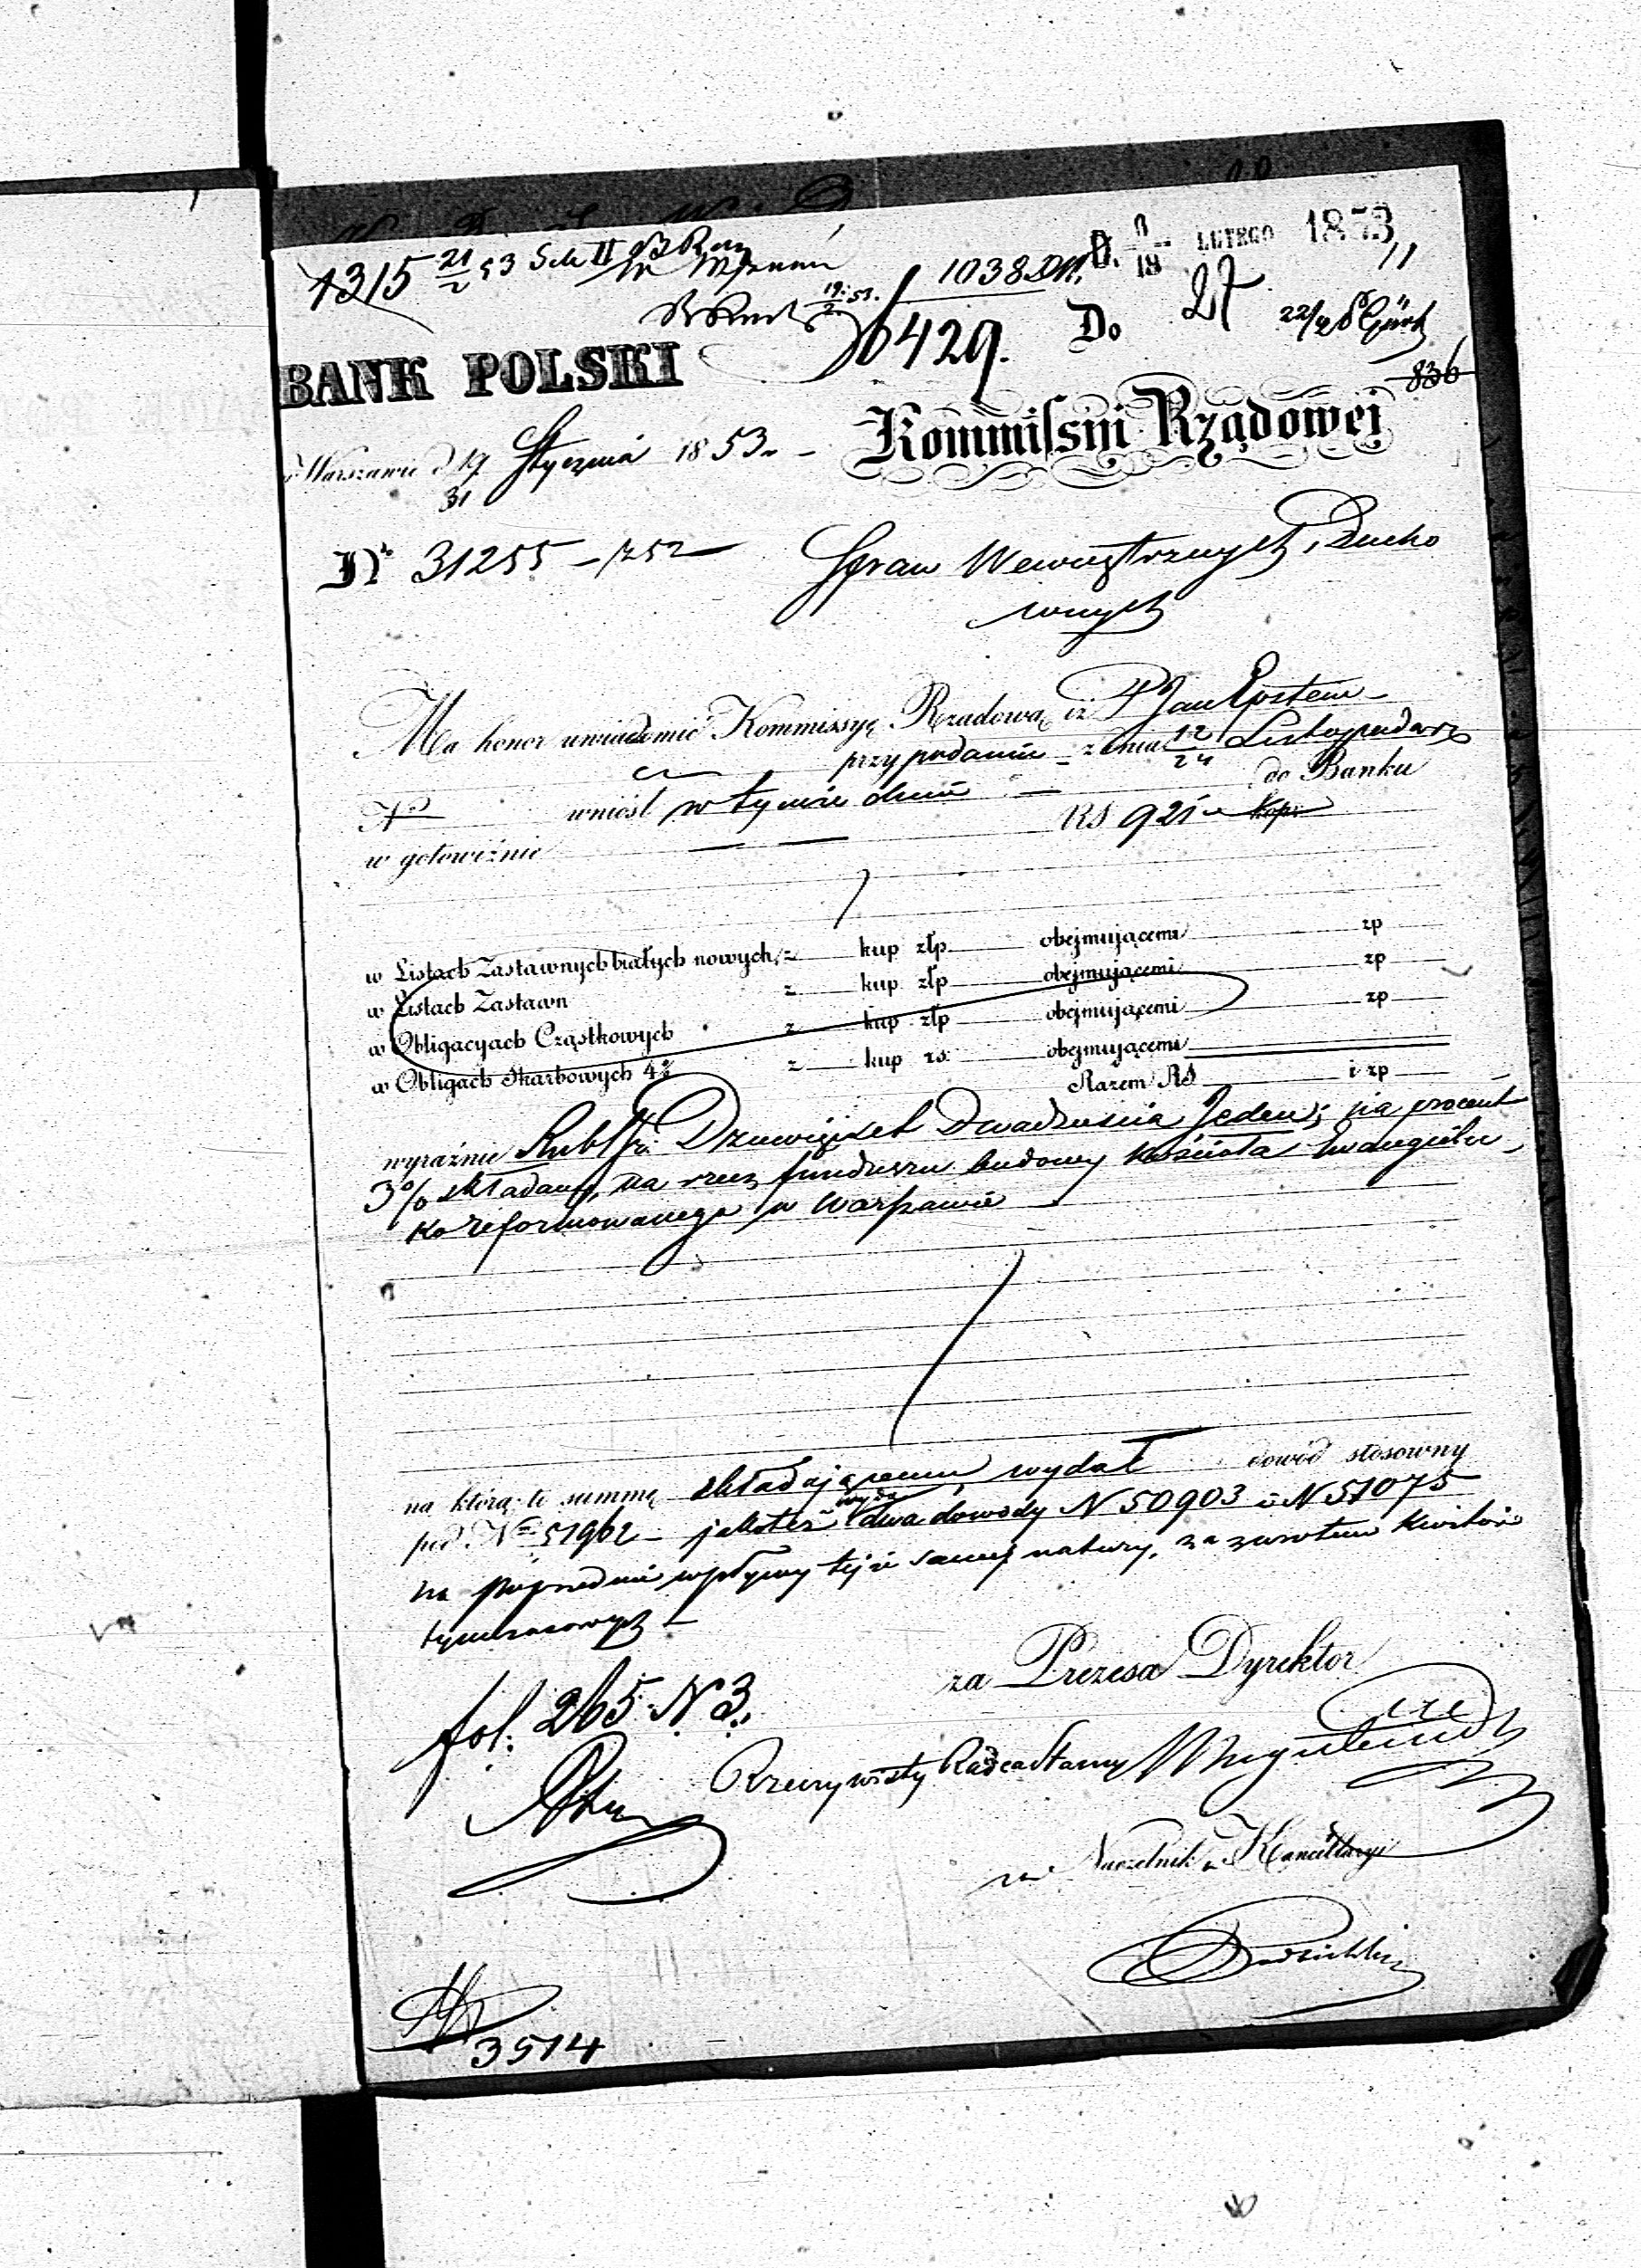 1315 21/2 53
1038
D. 6/18 LUTEGO 1853
6429.
Do
27
BANK POLSKI
836
w Warszawie d 19/31 Stycznia 1853.
Kommissyi Rządowej
Nr 31255 - /852
Spraw Wewnętrznych i Ducho
wnych
Ma honor uwiadomić Kommissyę Rządową iż P. Jan Epstein
przy podaniu z dnia 12/24 Listopada r z
No wniósł w tymże dniu do Banku
w gotowiźnie RS 921 kop:
w Listach Zastawnych białych nowych z kup złp obejmującemi zp
w Listach Zastawn z kup złp obejmującemi zp
w Obligacyach Cząstkowych z kup złp obejmującemi zp
w Obligach Skarbowych 4% z kup rs: obejmującemi
Razem RS i zp
wyraźnie Rubli sr. Dziewięćset Dwadzieścia Jeden; na procent
3% składany, na rzecz funduszu budowy Kościoła Ewangielic
ko reformowanego w Warszawie
na którą to summę składającemu wydał dowód stosowny
pod No 51962 - jakoteż dwa dowody N 50903 i N 51075
na poprzednie wpływy tejże samej natury, za zwrotem Kwitów
tymczasowych
za Prezesa Dyrektor
fol: 265 N 3.
Rzeczywisty Radca Stanu
Naczelnik Kancellaryi
3514